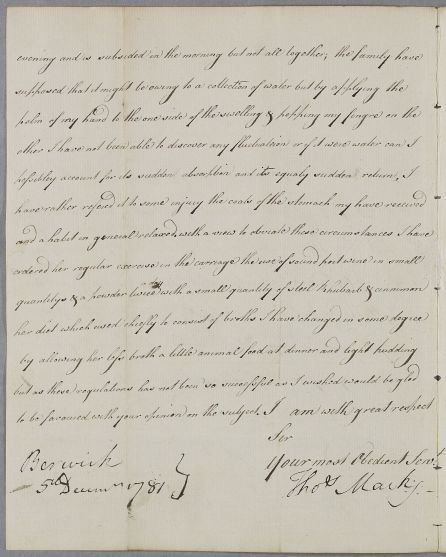 evening and is subsided in the morning but not all together; the family have
supposed that it might be owing to a collection of water but by applying the
palm of my hand to the one side of the swelling & popping my fingre on the
other I have not been able to discover any fluctuation or if it were water can I
possibley account for its sudden absorbtion and its equaly sudden return, I
have rather refered it to some injury the coats of the stomach my have received
and a habit in general relaxed, with a view to obviate those circumstances I have
ordered her regular exercise in the carriage the use of sound port wine in small
quantitys & a powder twice with a small quantity of steel Rhubarb & cinnamon
her diet which used chiefly to consist of broths I have changed in some degree
by allowing her less broth a little animal food at dinner and light pudding
but as these regulations has not been so successful as I wished would be glad
to be favoured with your opinion on the subject. I am with great respect
Sir
Your most Obedient Servt
Thos Mack
Berwick
5th Decemr 1781